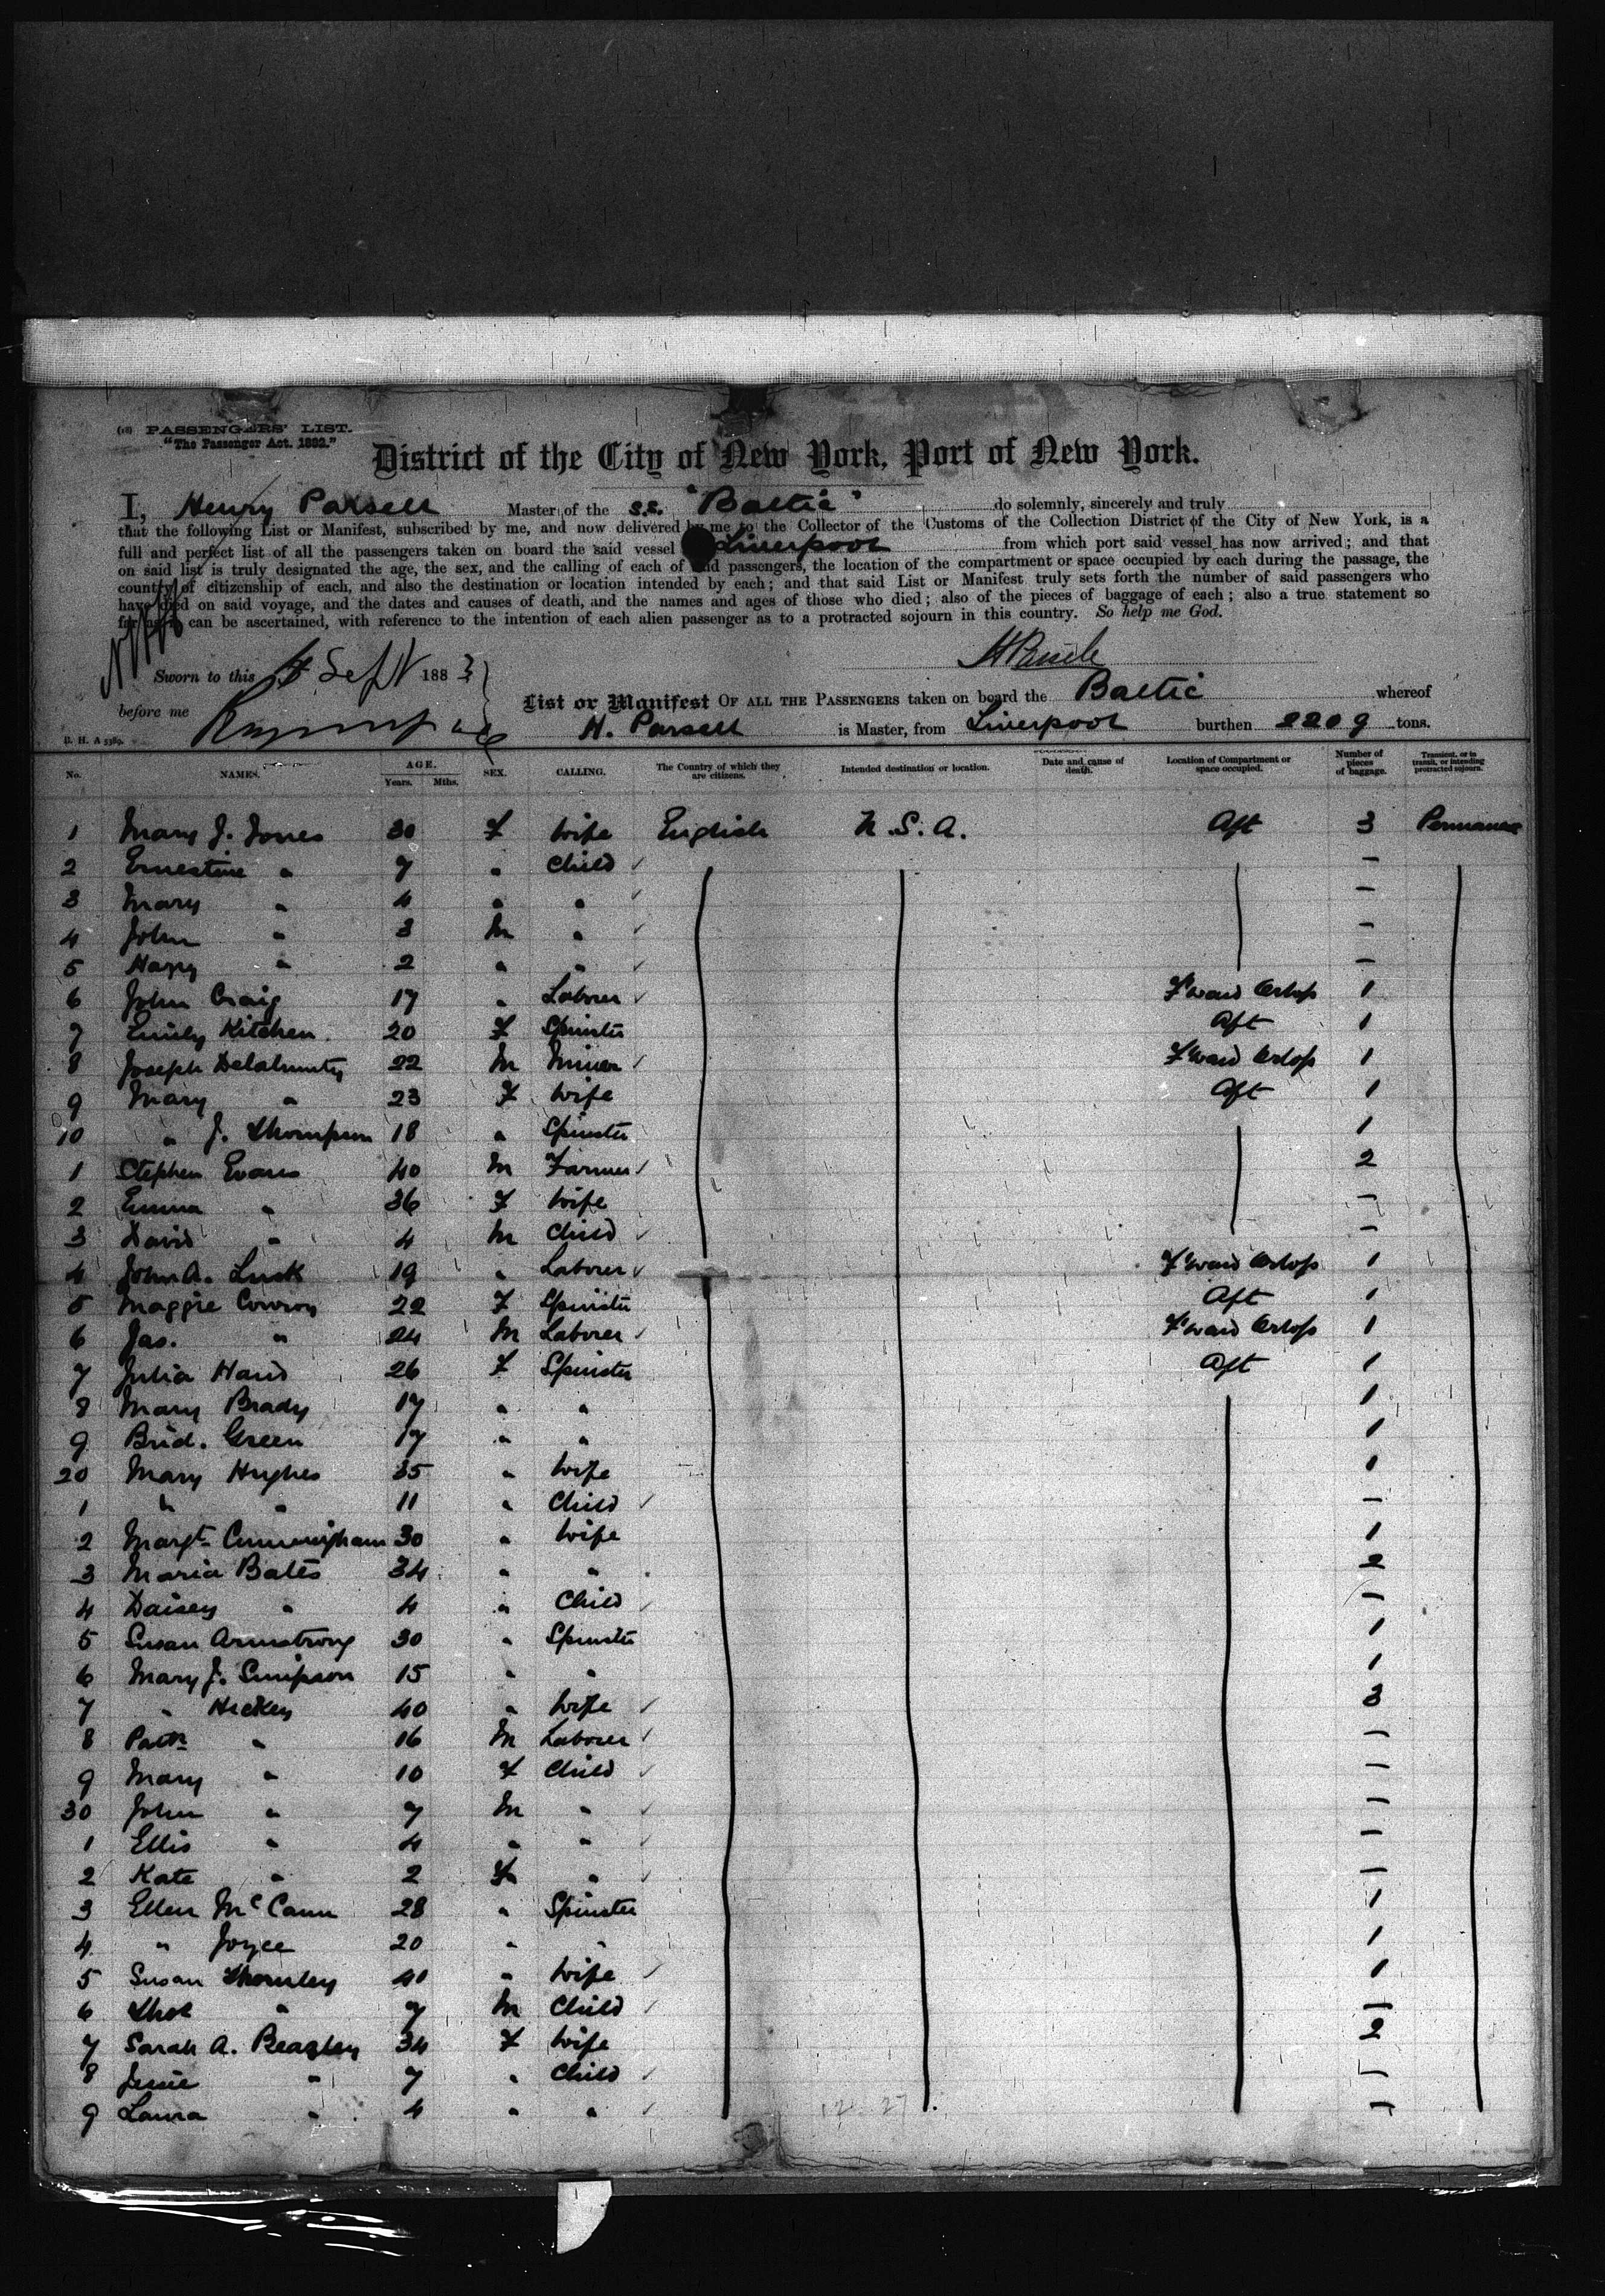 (18) PASSENGERS' LIST.
"The Passenger Act. 1882."
District of the City of New York, Port of New York.
I, Henry Parsell Master of the S.S. "Baltic" do solemnly, sincerely and truly
that the following List or Manifest, subscribed by me, and now delivered by me to the Collector of the Customs of the Collection District of the City of New York, is a
full and perfect list of all the passengers taken on board the said vessel Liverpool from which port said vessel has now arrived; and that
on said list is truly designated the age, the sex, and the calling of each of said passengers, the location of the compartment or space occupied by each during the passage, the
country of citizenship of each, and also the destination or location intended by each; and that said List or Manifest truly sets forth the number of said passengers who
have died on said voyage, and the dates and causes of death, and the names and ages of those who died; also of the pieces of baggage of each; also a true statement so
far as it can be ascertained, with reference to the intention of each alien passenger as to a protracted sojourn in this country. So help me God.
Sworn to this 4 Sept 1883
before me
List or Manifest OF ALL THE PASSENGERS taken on board the Baltic whereof
H. Parsell is Master, from Liverpool burthen 2209 tons.
No. NAMES. AGE. Years. Mths. SEX. CALLING. The Country of which they are citizens. Intended destination or location. Date and cause of death. Location of Compartment or space occupied. Number of pieces of baggage. Transient, or in transit, or intending protracted sojourn.
1 Mary J. Jones 30 F Wife English U.S.A. Aft 3 Permanent
2 Ernestine " 7 " Child ✓ —
3 Mary " 4 " " ✓ —
4 John " 3 M " ✓ —
5 Harry " 2 " " ✓ —
6 John Craig 17 " Laborer ✓ F'ward Orlop 1
7 Emily Kitchen 20 F Spinster Aft 1
8 Joseph Delahunty 22 M Miner ✓ F'ward Orlop 1
9 Mary " 23 F Wife Aft 1
10 " J. Thompson 18 " Spinster 1
1 Stephen Evans 40 M Farmer ✓ 2
2 Emma " 36 F Wife —
3 David " 4 M Child ✓ —
4 John A. Lusk 19 " Laborer ✓ F'ward Orlop 1
5 Maggie Conroy 22 F Spinster Aft 1
6 Jas. " 24 M Laborer ✓ F'ward Orlop 1
7 Julia Hand 26 F Spinster Aft 1
8 Mary Brady 17 " " 1
9 Brid. Green 17 " " 1
20 Mary Hughes 35 " Wife 1
1 " " 11 " Child ✓ —
2 Margt. Cunningham 30 " Wife 1
3 Maria Bates 34 " " 2
4 Daisey " 4 " Child ✓ —
5 Susan Armstrong 30 " Spinster 1
6 Mary J. Simpson 15 " " 1
7 " Hickey 40 " Wife ✓ 3
8 Patk " 16 M Laborer ✓ —
9 Mary " 10 F Child ✓ —
30 John " 7 M " ✓ —
1 Ellis " 4 " " ✓ —
2 Kate " 2 F " ✓ —
3 Ellen McCann 28 " Spinster 1
4 " Joyce 20 " " 1
5 Susan Thornley 41 " Wife ✓ 1
6 Thos " 7 M Child ✓ —
7 Sarah A. Beagley 34 F Wife 2
8 Jessie " 7 " Child ✓ —
9 Laura " 4 " " ✓ —